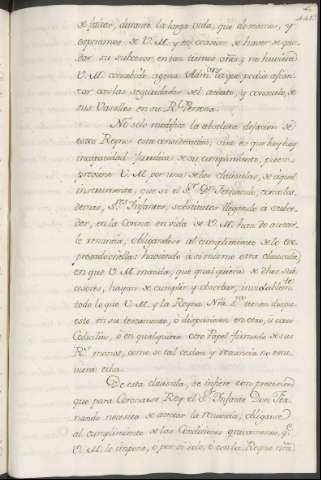 de faltar, durante la larga vida, que deseamos, y
esperamos de V. M. y en ocasion de haver de que
dar su subcesor en sus tiernos años, no huviera
V. M. concebido agena Adm.on la que podia afian
zar con las seguridades del acierto, y consuelo, de
sus Vasallos en su R.l Persona.
No solo mortifica la absoluta dejacion de
estos Reynos esta consideracion, sino es que hay hoy
incapacidad Juridica de su cumplimiento, pues
previene V. M. por una de las clausulas, de aquel
instrumento, que si el S.r D.n Fernando, como los
demas, S.res Infantes, substitutos llegando a subce
der, en la Corona en vida de V. M. han de aceptar
la renuncia, obligandose al cumplimiento de lo ex
presado en ella: haciendo a si mismo otra clausula
en que V. M. manda, que qualquiera de dhos sub
cesores, hayan de cumplir y observar, inviolablem.te
todo lo que V. M. y la Reyna Nra S.ra tienen dispu
esto en su testamento, ò disposicion en otro, ù otros
Cobdicilios, ò en qualquiera otro Papel firmado de sus
R.s manos, como si tal cesion y renuncia no estu
viera echa.
De esta clausula, se infiere con precision
que para Coronarse Rey el S.r Infante Don Fer
nando necesita de aceptar la renuncia, obligarse
al cumplimiento de las Condiciones que
V. M. le impone, ò por si solo, ò con la Reyna nra